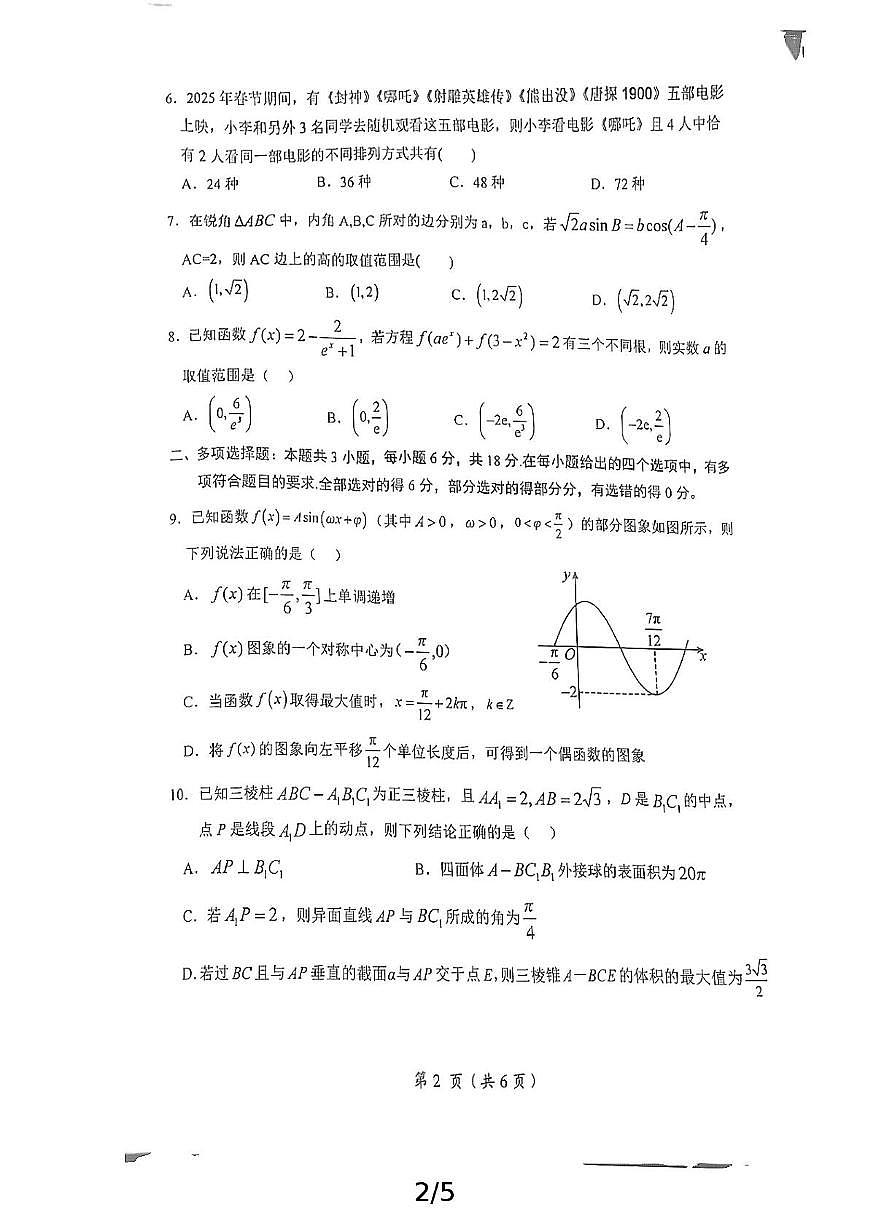 6. 2025 年春节期间，有《封神》《哪吒》《射雕英雄传》《熊出没》《唐探 1900》五部电影
上映，小李和另外 3 名同学去随机观看这五部电影，则小李看电影《哪吒》且 4 人中恰
有 2 人看同一部电影的不同排列方式共有( )
A. 24 种 B. 36 种 C. 48 种 D. 72 种
7. 在锐角 ΔABC 中，内角 A,B,C 所对的边分别为 a，b，c，若 √2a sin B = b cos(A − π/4)，
AC=2，则 AC 边上的高的取值范围是( )
A. (1,√2) B. (1,2) C. (1,2√2) D. (√2,2√2)
8. 已知函数 f(x) = 2 − 2/(eˣ+1)，若方程 f(aeˣ) + f(3 − x²) = 2 有三个不同根，则实数 a 的
取值范围是（ ）
A. (0, 6/e³) B. (0, 2/e) C. (−2e, 6/e³) D. (−2e, 2/e)
二、多项选择题：本题共 3 小题，每小题 6 分，共 18 分.在每小题给出的四个选项中，有多
项符合题目的要求.全部选对的得 6 分，部分选对的得部分分，有选错的得 0 分。
9. 已知函数 f(x) = A sin(ωx+φ)（其中 A＞0，ω＞0，0<φ<π/2）的部分图象如图所示，则
下列说法正确的是（ ）
A. f(x) 在 [−π/6, π/3] 上单调递增
B. f(x) 图象的一个对称中心为 (−π/6, 0)
C. 当函数 f(x) 取得最大值时，x = π/12 + 2kπ，k∈Z
D. 将 f(x) 的图象向左平移 π/12 个单位长度后，可得到一个偶函数的图象
y
7π/12
−π/6 O x
−2
10. 已知三棱柱 ABC − A₁B₁C₁ 为正三棱柱，且 AA₁ = 2, AB = 2√3，D 是 B₁C₁ 的中点，
点 P 是线段 A₁D 上的动点，则下列结论正确的是（ ）
A. AP ⊥ B₁C₁ B. 四面体 A − BC₁B₁ 外接球的表面积为 20π
C. 若 A₁P = 2，则异面直线 AP 与 BC₁ 所成的角为 π/4
D.若过 BC 且与 AP 垂直的截面α与 AP 交于点 E,则三棱锥 A−BCE 的体积的最大值为 3√3/2
第 2 页（共 6 页）
2/5